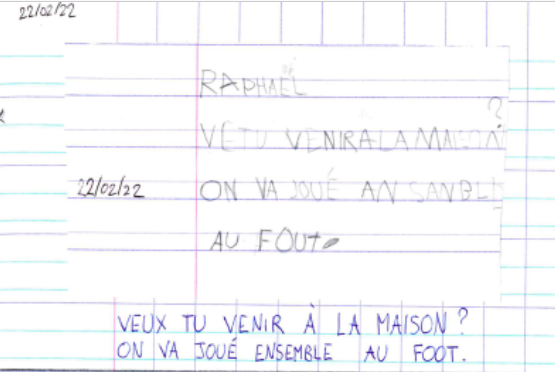 22/02/22
RAPHAËL
VE TU VENIR A LA MAISON ?
22/02/22 ON VA JOUÉ AN SANBLE
AU FOUT
VEUX TU VENIR À LA MAISON ?
ON VA JOUÉ ENSEMBLE AU FOOT.